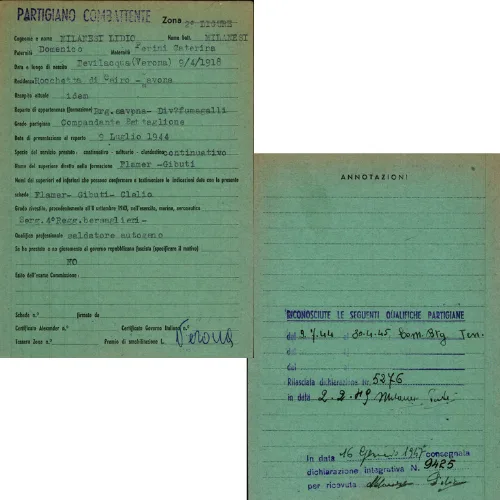 PARTIGIANO COMBATTENTE Zona 2ª LIGURE
Cognome e nome MILANESI LIDIO Nome Batt. MILANESI
Paternità Domenico Maternità Merini Caterina
Data e luogo di nascita Bevilacqua (Verona) 9/4/1918
Residenza Rocchetta di Cairo - Savona
Recapito attuale idem
Reparto di appartenenza (formazione) Brg.savona- Divºfumagalli
Grado partigiano Comandante Battaglione
Data di presentazione al reparto 9 Luglio 1944
Specie del servizio prestato: continuativo - saltuario - clandestino continuativo
Nome del superiore diretto nella formazione Flamer -Gibuti
Nomi dei superiori ed inferiori che possono confermare e testimoniare le indicazioni date con la presente
scheda Flamer- Gibuti- Clelio
Grado rivestito, precedentemente all'8 settembre 1943, nell'esercito, marina, aeronautica
Serg.4ºRegg.bersaglieri-
Qualifica professionale saldatore autogeno
Se ha prestato o no giuramento al governo repubblicano fascista (specificare il motivo)
NO
Esito dell'esame Commissione:
Scheda n.º firmata da
Certificato Alexander n.º Certificato Governo Italiano n.º
Tessera Zona n.º Premio di smobilitazione L.
Verona
ANNOTAZIONI
RICONOSCIUTE LE SEGUENTI QUALIFICHE PARTIGIANE
dal 9.7.44 al 30.4.45 Com. Btg Ten.
dal al
dal al
Rilasciata dichiarazione nr. 5276
in data 2.2.49 Milanesi
In data 16 Gennaio 1947 consegnata
dichiarazione integrativa N. 9425
per ricevuta Milanesi Lidio